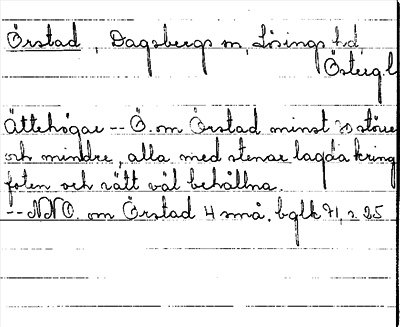 Örstad, Dagsbergs sn, Lösings hd,
Östergl
Ättehögar -- Ö. om Örstad minst 20 större
och mindre, alla med stenar lagda kring
foten och rätt väl behållna.
-- NNO. om Örstad 4 små. bglk 71, s. 25